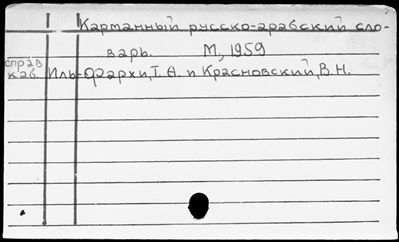 Карманный русско-арабский сло-
варь. М, 1959
справ
каб. Иль-Фарархи, Т. А. и Красновский, В. Н.